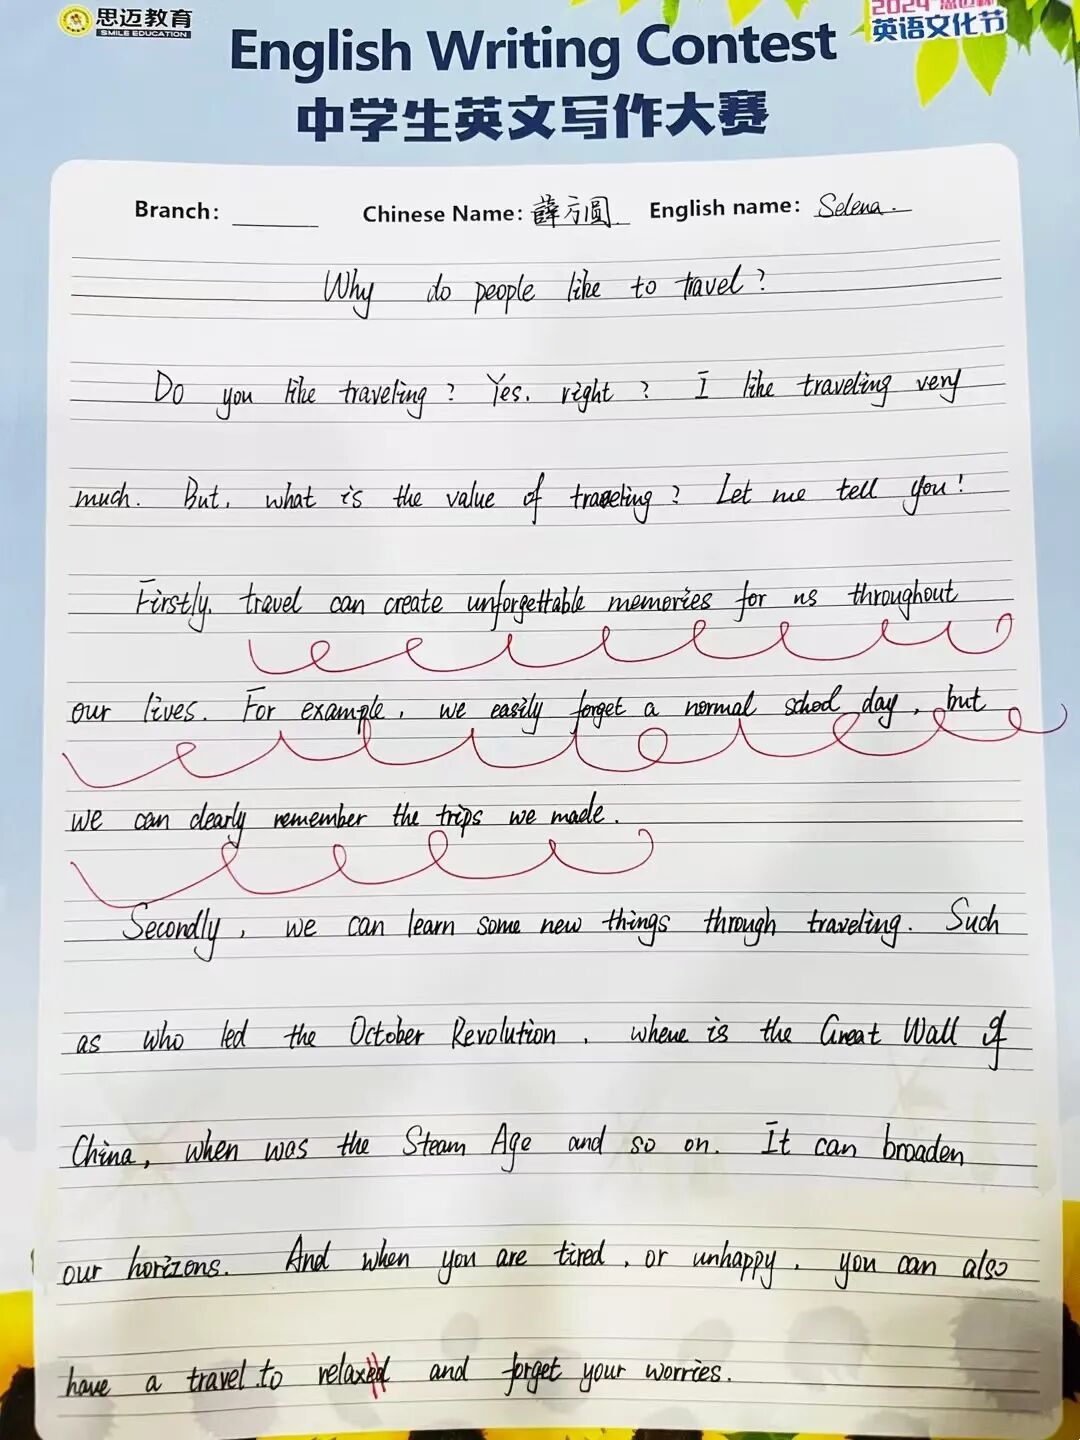 思迈教育
SMILE EDUCATION
2024"思迈杯"
英语文化节
English Writing Contest
中学生英文写作大赛
Branch: Chinese Name: 薛方圆 English name: Selena.
Why do people like to travel?
Do you like traveling? Yes, right? I like traveling very
much. But, what is the value of traveling? Let me tell you!
Firstly, travel can create unforgettable memories for us throughout
our lives. For example, we easily forget a normal school day, but
we can clearly remember the trips we made.
Secondly, we can learn some new things through traveling. Such
as who led the October Revolution, where is the Great Wall of
China, when was the Steam Age and so on. It can broaden
our horizons. And when you are tired, or unhappy, you can also
have a travel to relaxed and forget your worries.